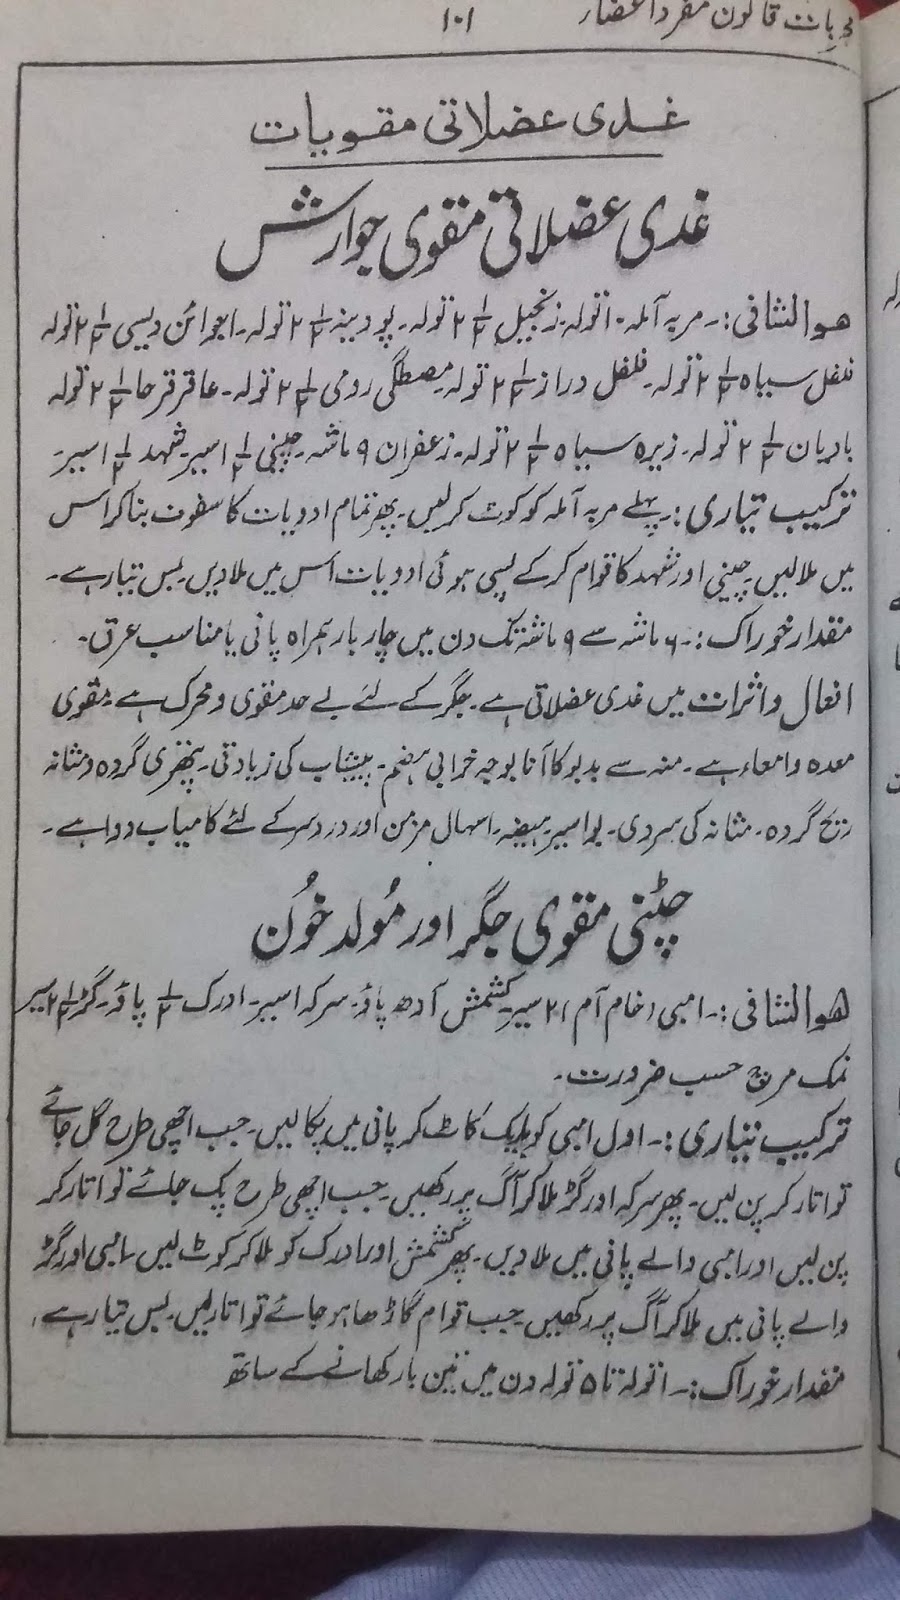 مجربات قانون مفرد اعضاء ۱۰۱
غدی عضلاتی مقویات
غدی عضلاتی مقوی جوارش
ھوالشافی:۔ مربہ آملہ ۱۰ تولہ۔ زنجبیل ۲½ تولہ۔ پودینہ ۲½ تولہ۔ اجوائن دیسی ۲½ تولہ
فلفل سیاہ ۲½ تولہ۔ فلفل دراز ۲½ تولہ۔ مصطگی رومی ۲½ تولہ۔ عاقرقرحا ۲½ تولہ
بادیان ۲½ تولہ۔ زیرہ سیاہ ۲½ تولہ۔ زعفران ۹ ماشہ۔ چینی ۱½ سیر۔ شہد ۱½ سیر۔
ترکیب تیاری:۔ پہلے مربہ آملہ کو کوٹ کر لیں۔ پھر تمام ادویات کا سفوف بنا کر اس
میں ملا لیں۔ چینی اور شہد کا قوام کر کے پسی ہوئی ادویات اس میں ملا دیں۔ بس تیار ہے۔
مقدار خوراک:۔ ۶ ماشہ سے ۹ ماشہ تک دن میں چار بار ہمراہ پانی یا مناسب عرق۔
افعال و اثرات میں غدی عضلاتی ہے۔ جگر کے لئے بے حد مقوی و محرک ہے۔ مقوی
معدہ و امعاء ہے۔ منہ سے بدبو کا آنا بوجہ خرابی ہضم۔ پیشاب کی زیادتی۔ پتھری گردہ و مثانہ
ریح گردہ۔ مثانہ کی سردی۔ بواسیر۔ ہیضہ۔ اسہال مزمن اور درد سر کے لئے کامیاب دوا ہے۔
چٹنی مقوی جگر اور مُولد خُون
ھوالشافی:۔ امبی (خام آم) ۲ سیر۔ کشمش آدھ پاؤ۔ سرکہ ۱ سیر۔ ادرک ½ پاؤ۔ گڑ ۲½ سیر
نمک مرچ حسب ضرورت۔
ترکیب تیاری:۔ اول امبی کو باریک کاٹ کر پانی میں پکا لیں۔ جب اچھی طرح گل جائے
تو اتار کر پن لیں۔ پھر سرکہ اور گڑ ملا کر آگ پر رکھیں۔ جب اچھی طرح پک جائے تو اتار کر
پن لیں اور امبی والے پانی میں ملا دیں۔ پھر کشمش اور ادرک کو ملا کر کوٹ لیں۔ امبی اور گڑ
والے پانی میں ملا کر آگ پر رکھیں۔ جب قوام گاڑھا ہو جائے تو اتار لیں۔ بس تیار ہے۔
مقدار خوراک:۔ ۱ تولہ تا ۵ تولہ دن میں تین بار کھانے کے ساتھ